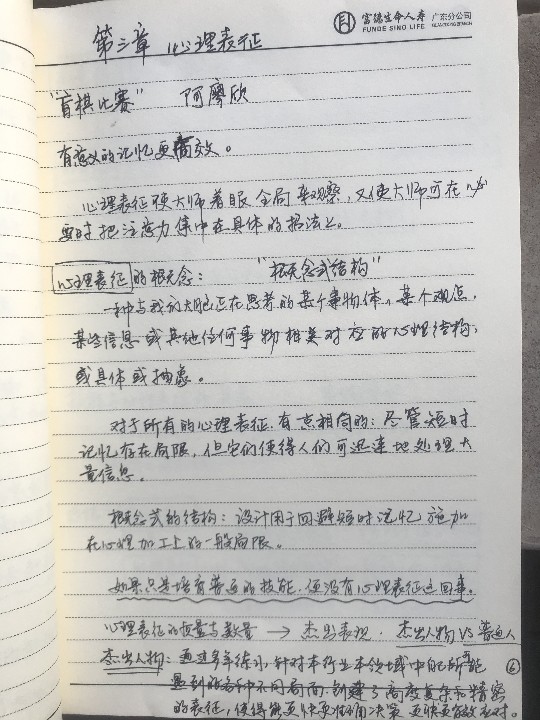 富德生命人寿 广东分公司
FUNDE SINO LIFE GUANGDONG BRANCH
第三章 心理表征
"盲棋比赛" 阿廖欣
有意义的记忆更高效。
心理表征使大师着眼全局来观察，又使大师可在必
要时把注意力集中在具体的招法上。
心理表征的概念： "概念式结构"
一种与我们大脑正在思考的某个事物体，某个观点，
某些信息或其他任何事物相关对应的心理结构，
或具体或抽象。
对于所有的心理表征，有点相同的：尽管短时
记忆存在局限，但它们使得人们可迅速地处理大
量信息。
概念式的结构：设计用于回避短时记忆施加
在心理加工上的一般局限。
如果只是培育普通的技能，便没有心理表征这回事。
心理表征的质量与数量 → 杰出表现. 杰出人物 VS 普通人
杰出人物：通过多年练习，针对本行业本领域中自己所可能
遇到的各种不同局面，创建了高度复杂和精密
的表征，使得能更快更准确决策，更快更有效应对。
⑥